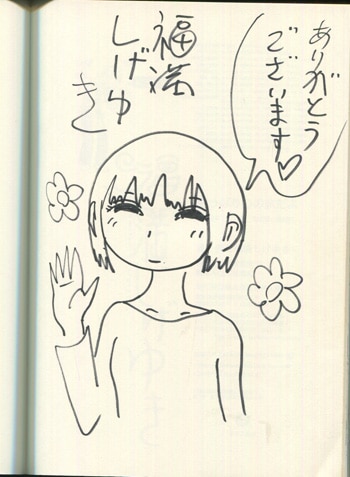 ありがとう
ございます♡
福満
しげゆ
き